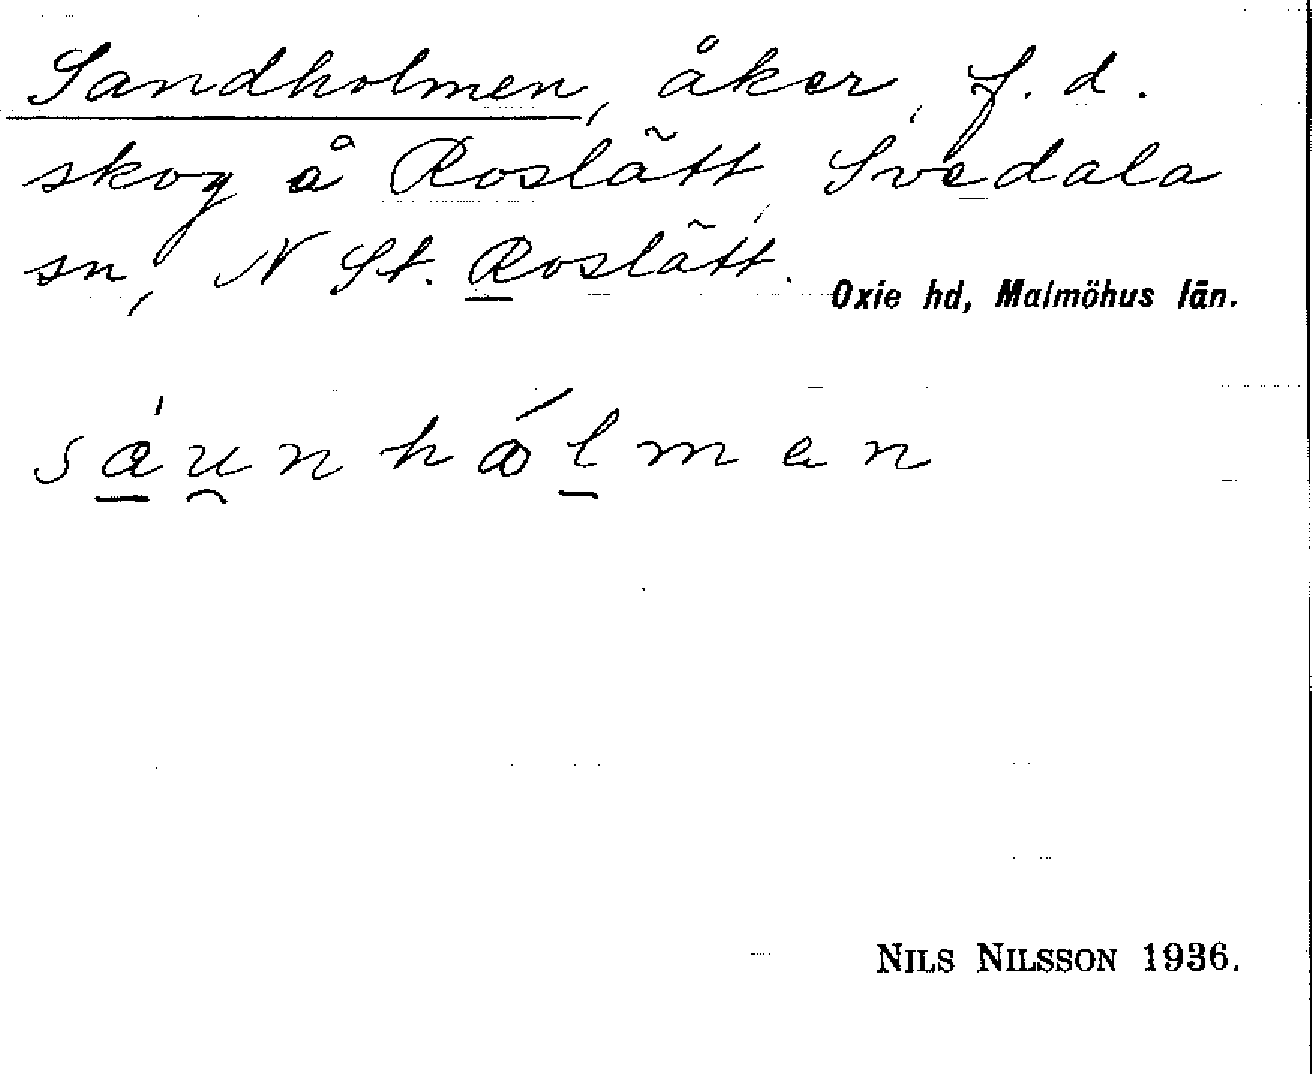 Sandholmen, åker, f.d.
skog å Roslätt, Svedala
sn, N St. Roslätt.
Oxie hd, Malmöhus län.
sa̱̍u̯nhǻḻmen
NILS NILSSON 1936.